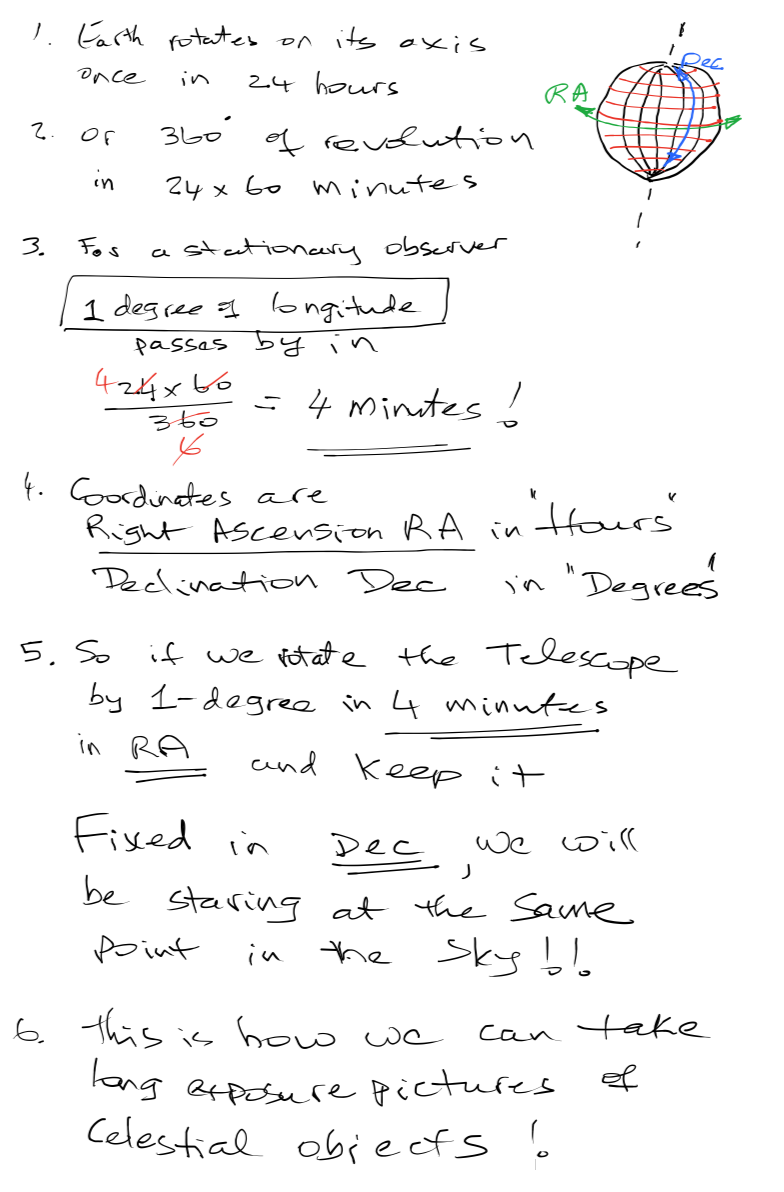 1. Earth rotates on its axis
once in 24 hours
Dec
RA
2. or 360° of revolution
in 24 x 60 minutes
3. For a stationary observer
1 degree of longitude
passes by in
4 24 x 60
360
6
= 4 minutes!
4. Coordinates are
Right Ascension RA in "Hours"
Declination Dec in "Degrees"
5. So if we rotate the Telescope
by 1-degree in 4 minutes
in RA and keep it
Fixed in Dec, we will
be staring at the same
point in the sky!!
6. This is how we can take
long exposure pictures of
Celestial objects!